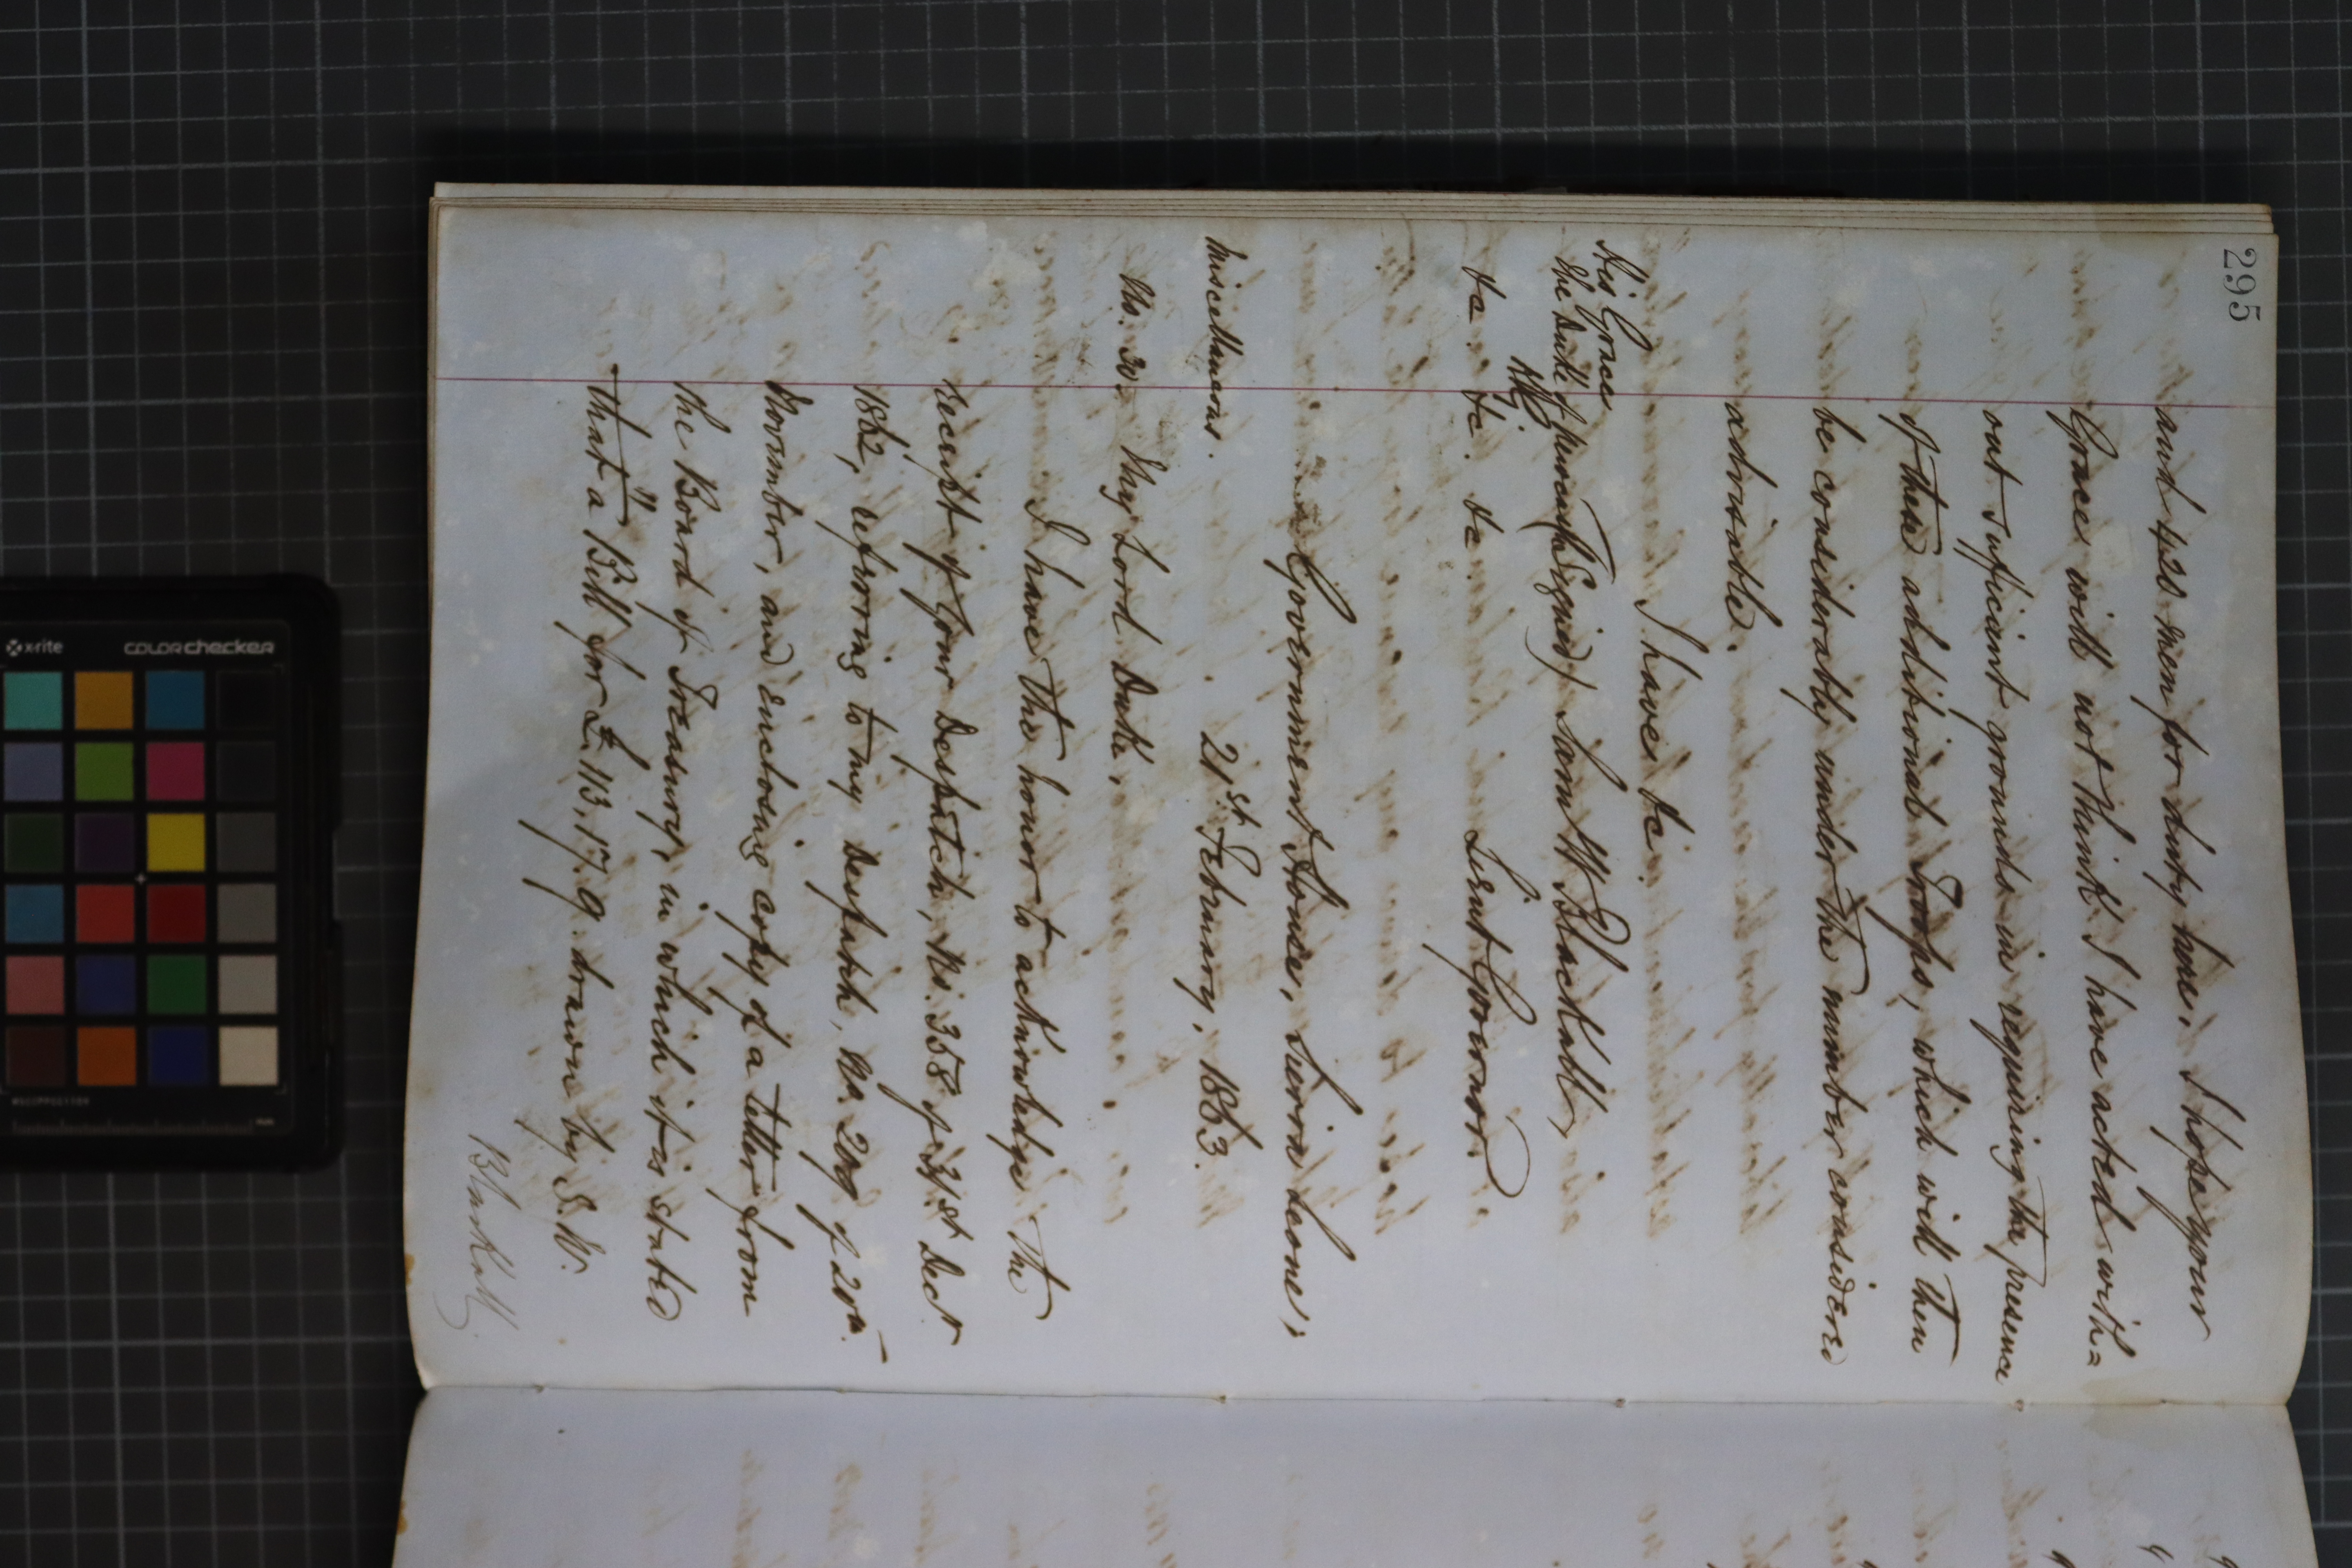 295
and 420 men for duty here, I hope your
Grace will not think I have acted with=
out sufficient grounds in requiring the presence
of these additional Troops, which will then
be considerably under the number considered
advisable.
I have &c.
His Grace
The Duke of Newcastle (Signed) Saml W. Blackall,
KG
&c. &c. &c. Lieut Governor.
Government House, Sierra Leone,
Miscellaneous. 21st February, 1863.
No. 30. My Lord Duke,
I have the honor to acknowledge the
receipt of Your Despatch, No. 358 of 31st Decr
1862, referring to my Despatch, No. 209 of 20th
November, and enclosing copy of a letter from
the Board of Treasury, in which it is stated
that "a Bill for £113.17.9 drawn by S. W.
Blackall
x-rite colorchecker